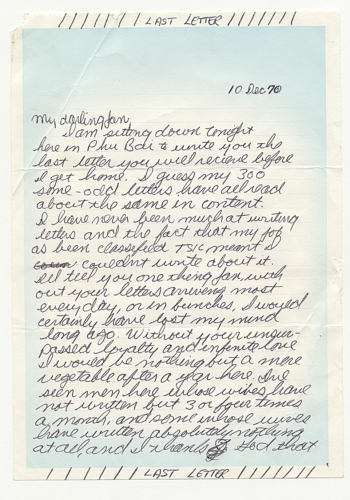 / / / / / / / LAST LETTER / / / / / / /
10 Dec 70
My darling Jan,
I am sitting down tonight
here in Phu Bai to write you the
last letter you will recieve before
I get home. I guess my 300
some-odd letters have all read
about the same in content.
I have never been much at writing
letters and the fact that my job
as been classified TSIC meant I
couldn't write about it.
I'll tell you one thing Jan, with
out your letters arriving most
everyday, or in bunches, I would
certainly have lost my mind
long ago. Without your unsur-
passed loyalty and infinite love
I would be nothing but a mere
vegetable after a year here. I've
seen men here whose wives have
not written but 3 or four times
a month, and some whose wives
have written absolutely nothing
at all, and I thank God that
/ / / / / / / LAST LETTER / / / / / / /